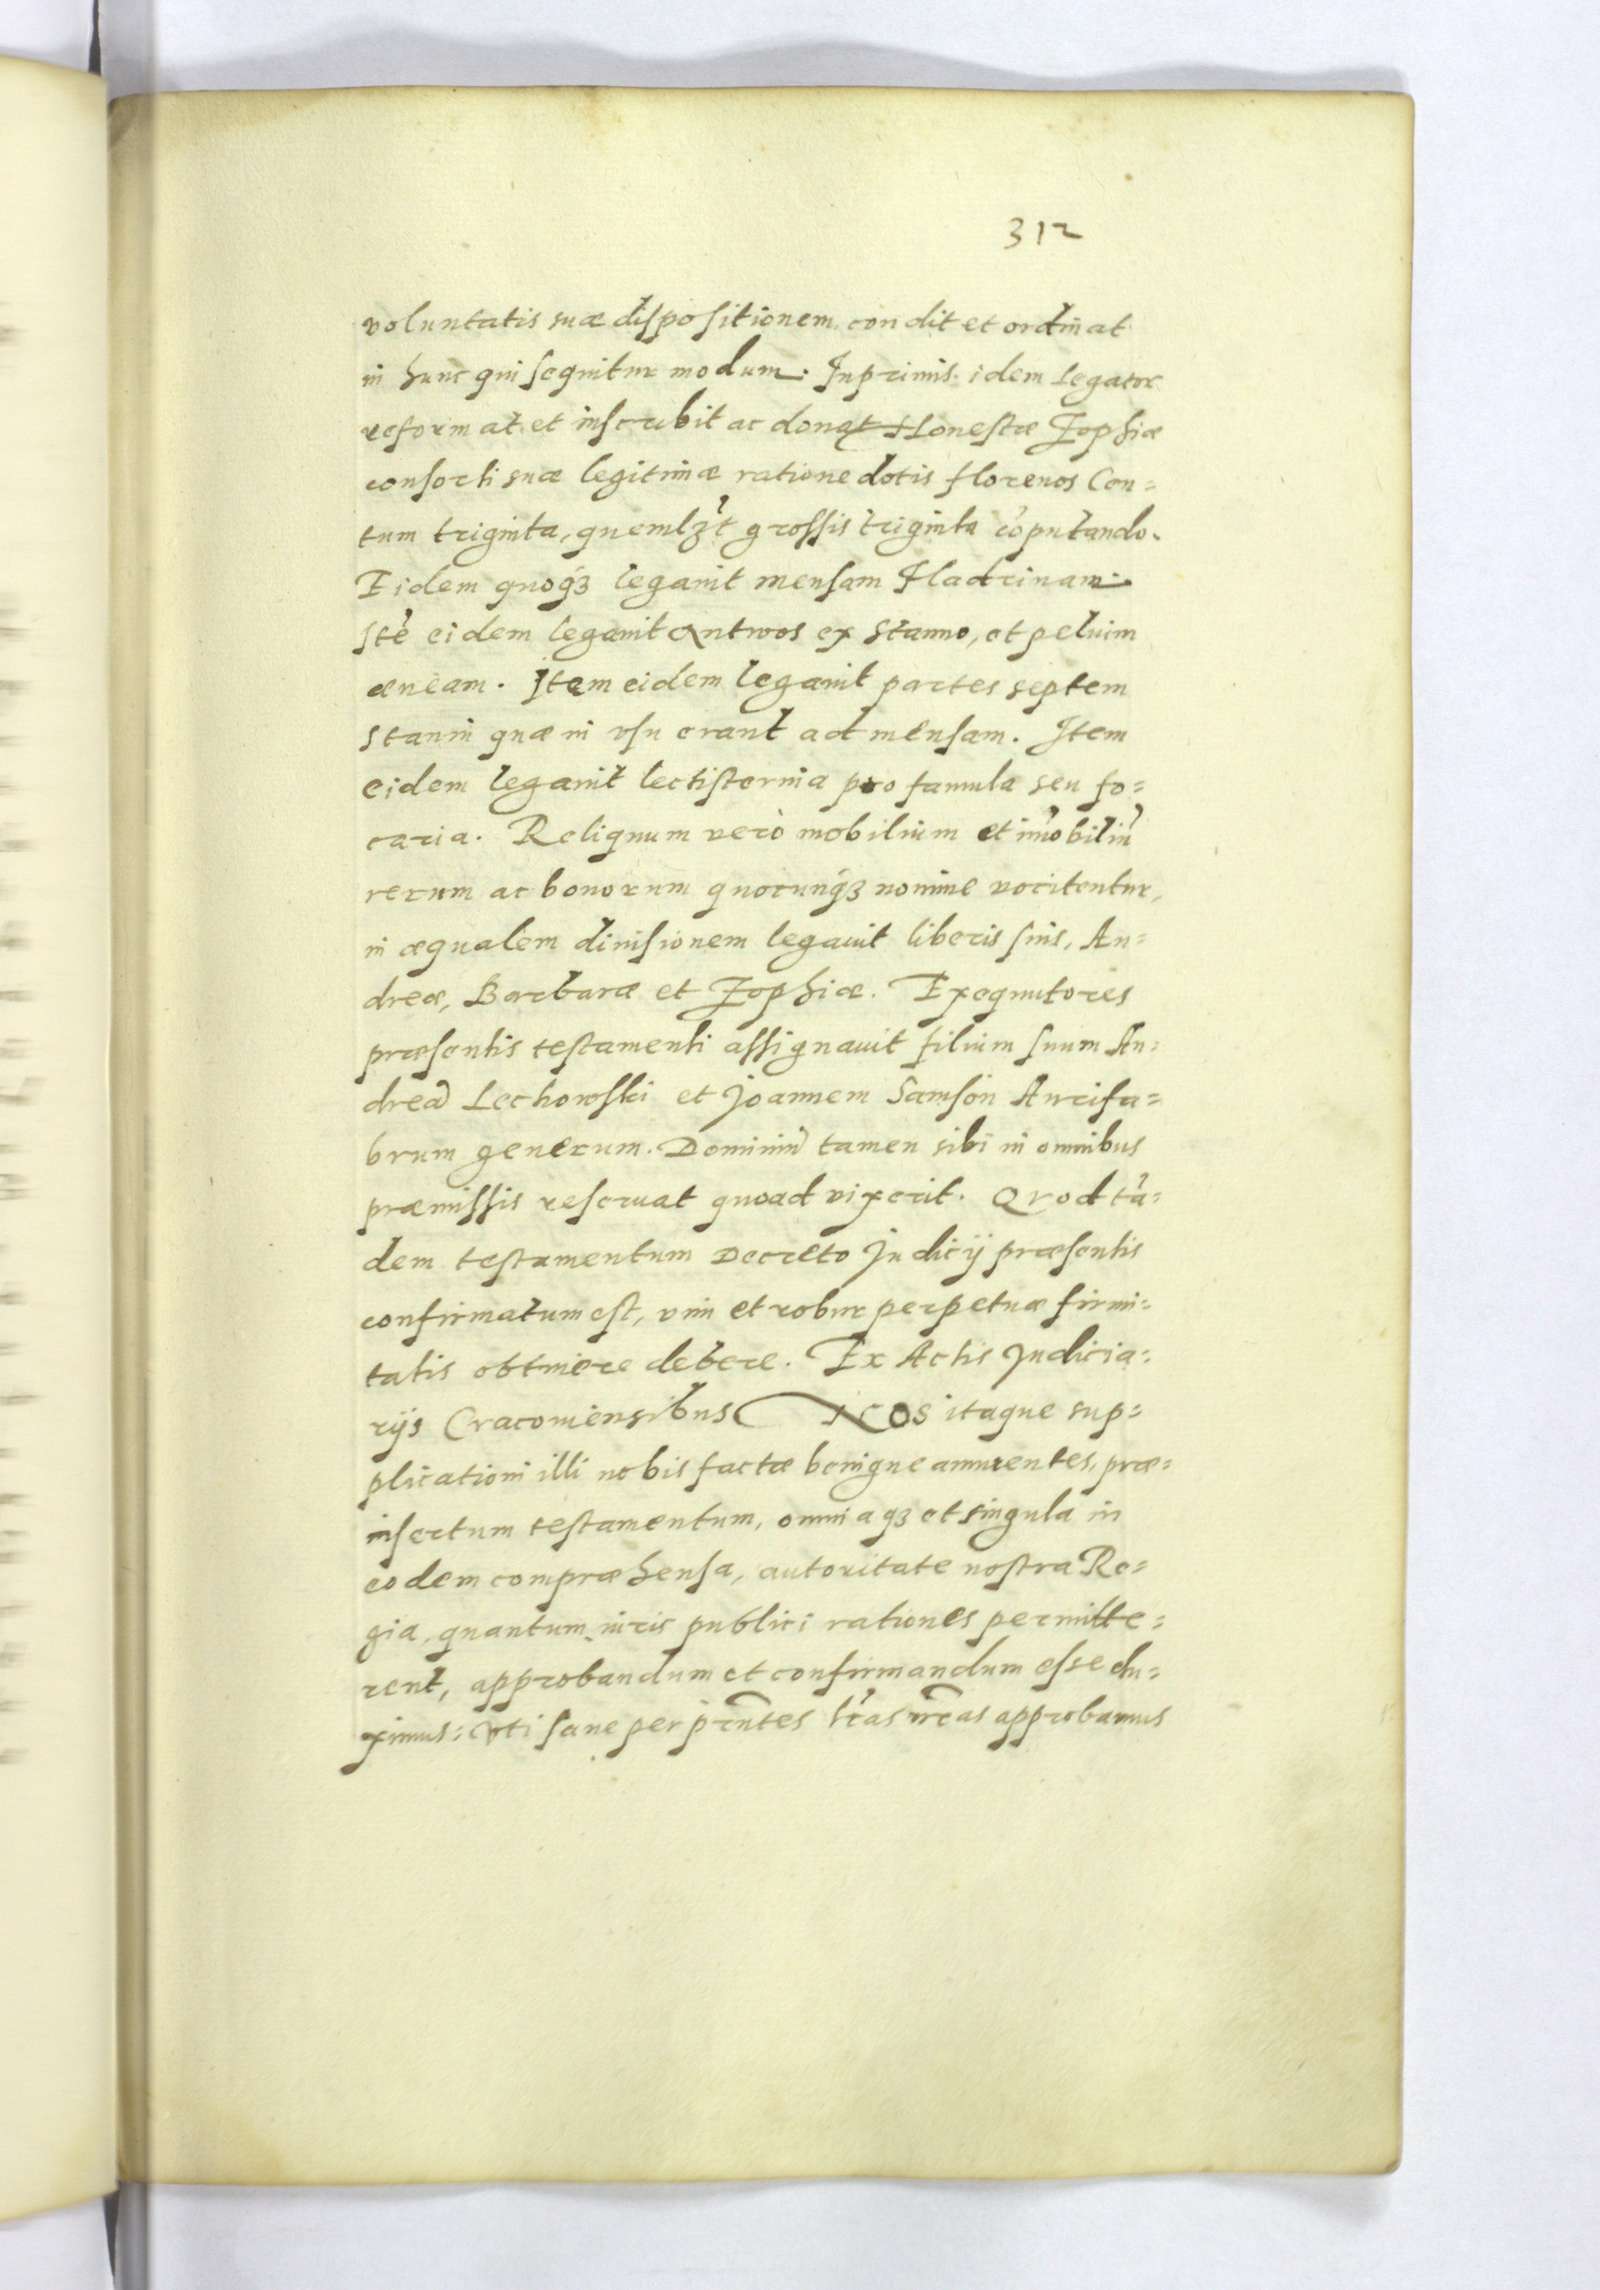 312
voluntatis suæ dispositionem condit et ordinat
in hunc qui sequitur modum. Inprimis idem Legator
reformat et inscribit ac donat Honestæ Zophiæ
consorti suæ legitimæ ratione dotis florenos Cen=
tum triginta, quemlʒt grossis triginta cōputando.
Eidem quoqʒ legauit mensam Fladrinam.
Itē eidem legauit ex Stanno, et peluim
æneam. Item eidem legauit partes septem
stanni quæ in vsu erant ad mensam. Item
eidem legauit lectisternia pro famula seu fo=
caria. Reliquum verò mobilium et im̄obiliū
rerum ac bonorum quocunqʒ nomine vocitentur,
in æqualem diuisionem legauit liberis suis, An=
dreæ, Barbaræ et Zophiæ. Exequutores
præsentis testamenti assignauit filium suum An=
dreā Lechowski et Joannem Samson Aurifa=
brum generum. Dominiū tamen sibi in omnibus
præmissis reseruat quoad vixerit. Quod tā=
dem testamentum Decreto Judicij præsentis
confirmatum est, vim et robur perpetuæ firmi=
tatis obtinere debere. Ex Actis Judicia=
rijs Cracouiensibus NOS itaque sup=
plicationi illi nobis factæ benigne annuentes, præ=
insertum testamentum, omniaqʒ et singula in
eodem compræhensa, autoritate nostra Re=
gia, quantum iuris publici rationes permitte=
rent, approbandum et confirmandum esse du=
ximus: Vti sane per pñtes lr̄as nr̄as approbamus